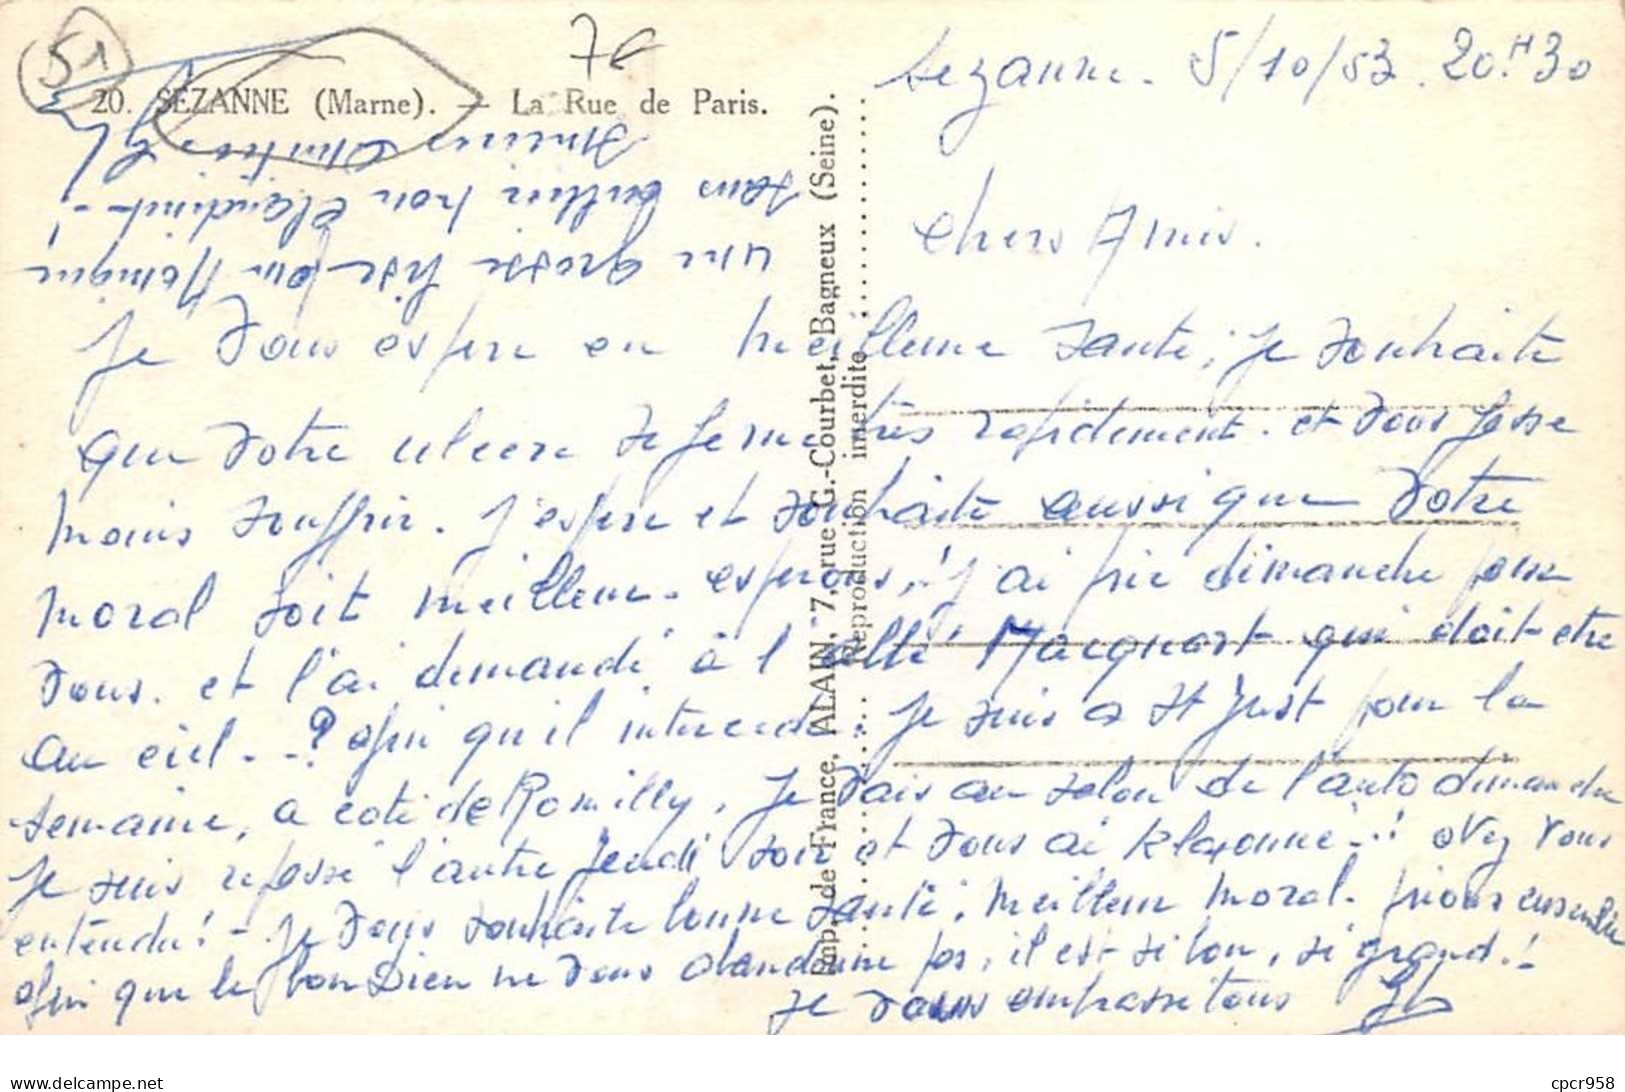 51
7e
20. SEZANNE (Marne). — La Rue de Paris.
Sezanne. 5/10/53. 20H30
Chers Amis.
Je vous espère en meilleure santé, je souhaite
que votre ulcère se ferme très rapidement. et vous fasse
moins souffrir. J'espère et souhaite aussi que votre
moral soit meilleur. espérons,! J'ai prié dimanche pour
vous. et l'ai demandé à l'abbé Macquart qui doit etre
au ciel. -? afin qu'il intercède. Je suis a St Just pour la
semaine, a coté de Romilly. Je vais au salon de l'auto dimanche
Je suis repassé l'autre jeudi soir et vous ai klaxonné..! avez vous
entendu! - Je vous souhaite bonne santé, meilleur moral. prions ensemble
afin que le bon Dieu ne vous abandonne pas, il est si bon, si grand!
Je vous embrasse tous
une grosse bise à Monique
sans oublier mon Claudinet-!
Amitiés
Imp. de France, ALAIN, 7, rue G.-Courbet, Bagneux (Seine).
Reproduction interdite
cpcr958